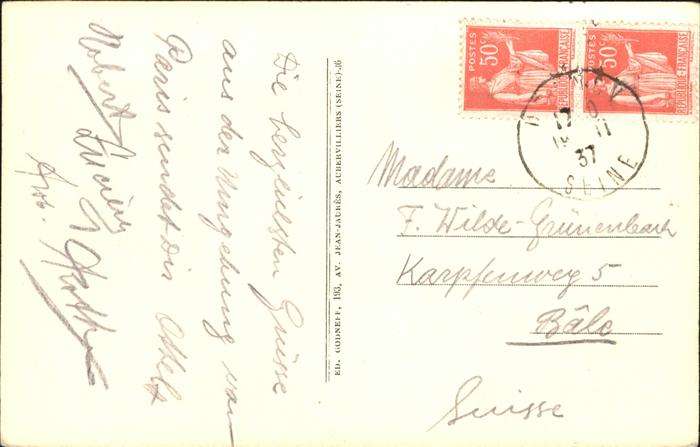 Die herzlichsten Grüsse
aus der Umgebung von
Paris sendet Dir
Robert
ED. GODNEFF, 193, AV. JEAN-JAURÈS, AUBERVILLIERS (SEINE)-36
POSTES
50c
RÉPUBLIQUE-FRANÇAISE
POSTES
50c
RÉPUBLIQUE-FRANÇAISE
37
SEINE
Madame
F. Wilde-Grünenbach
Karpfenweg 5
Bâle
Suisse